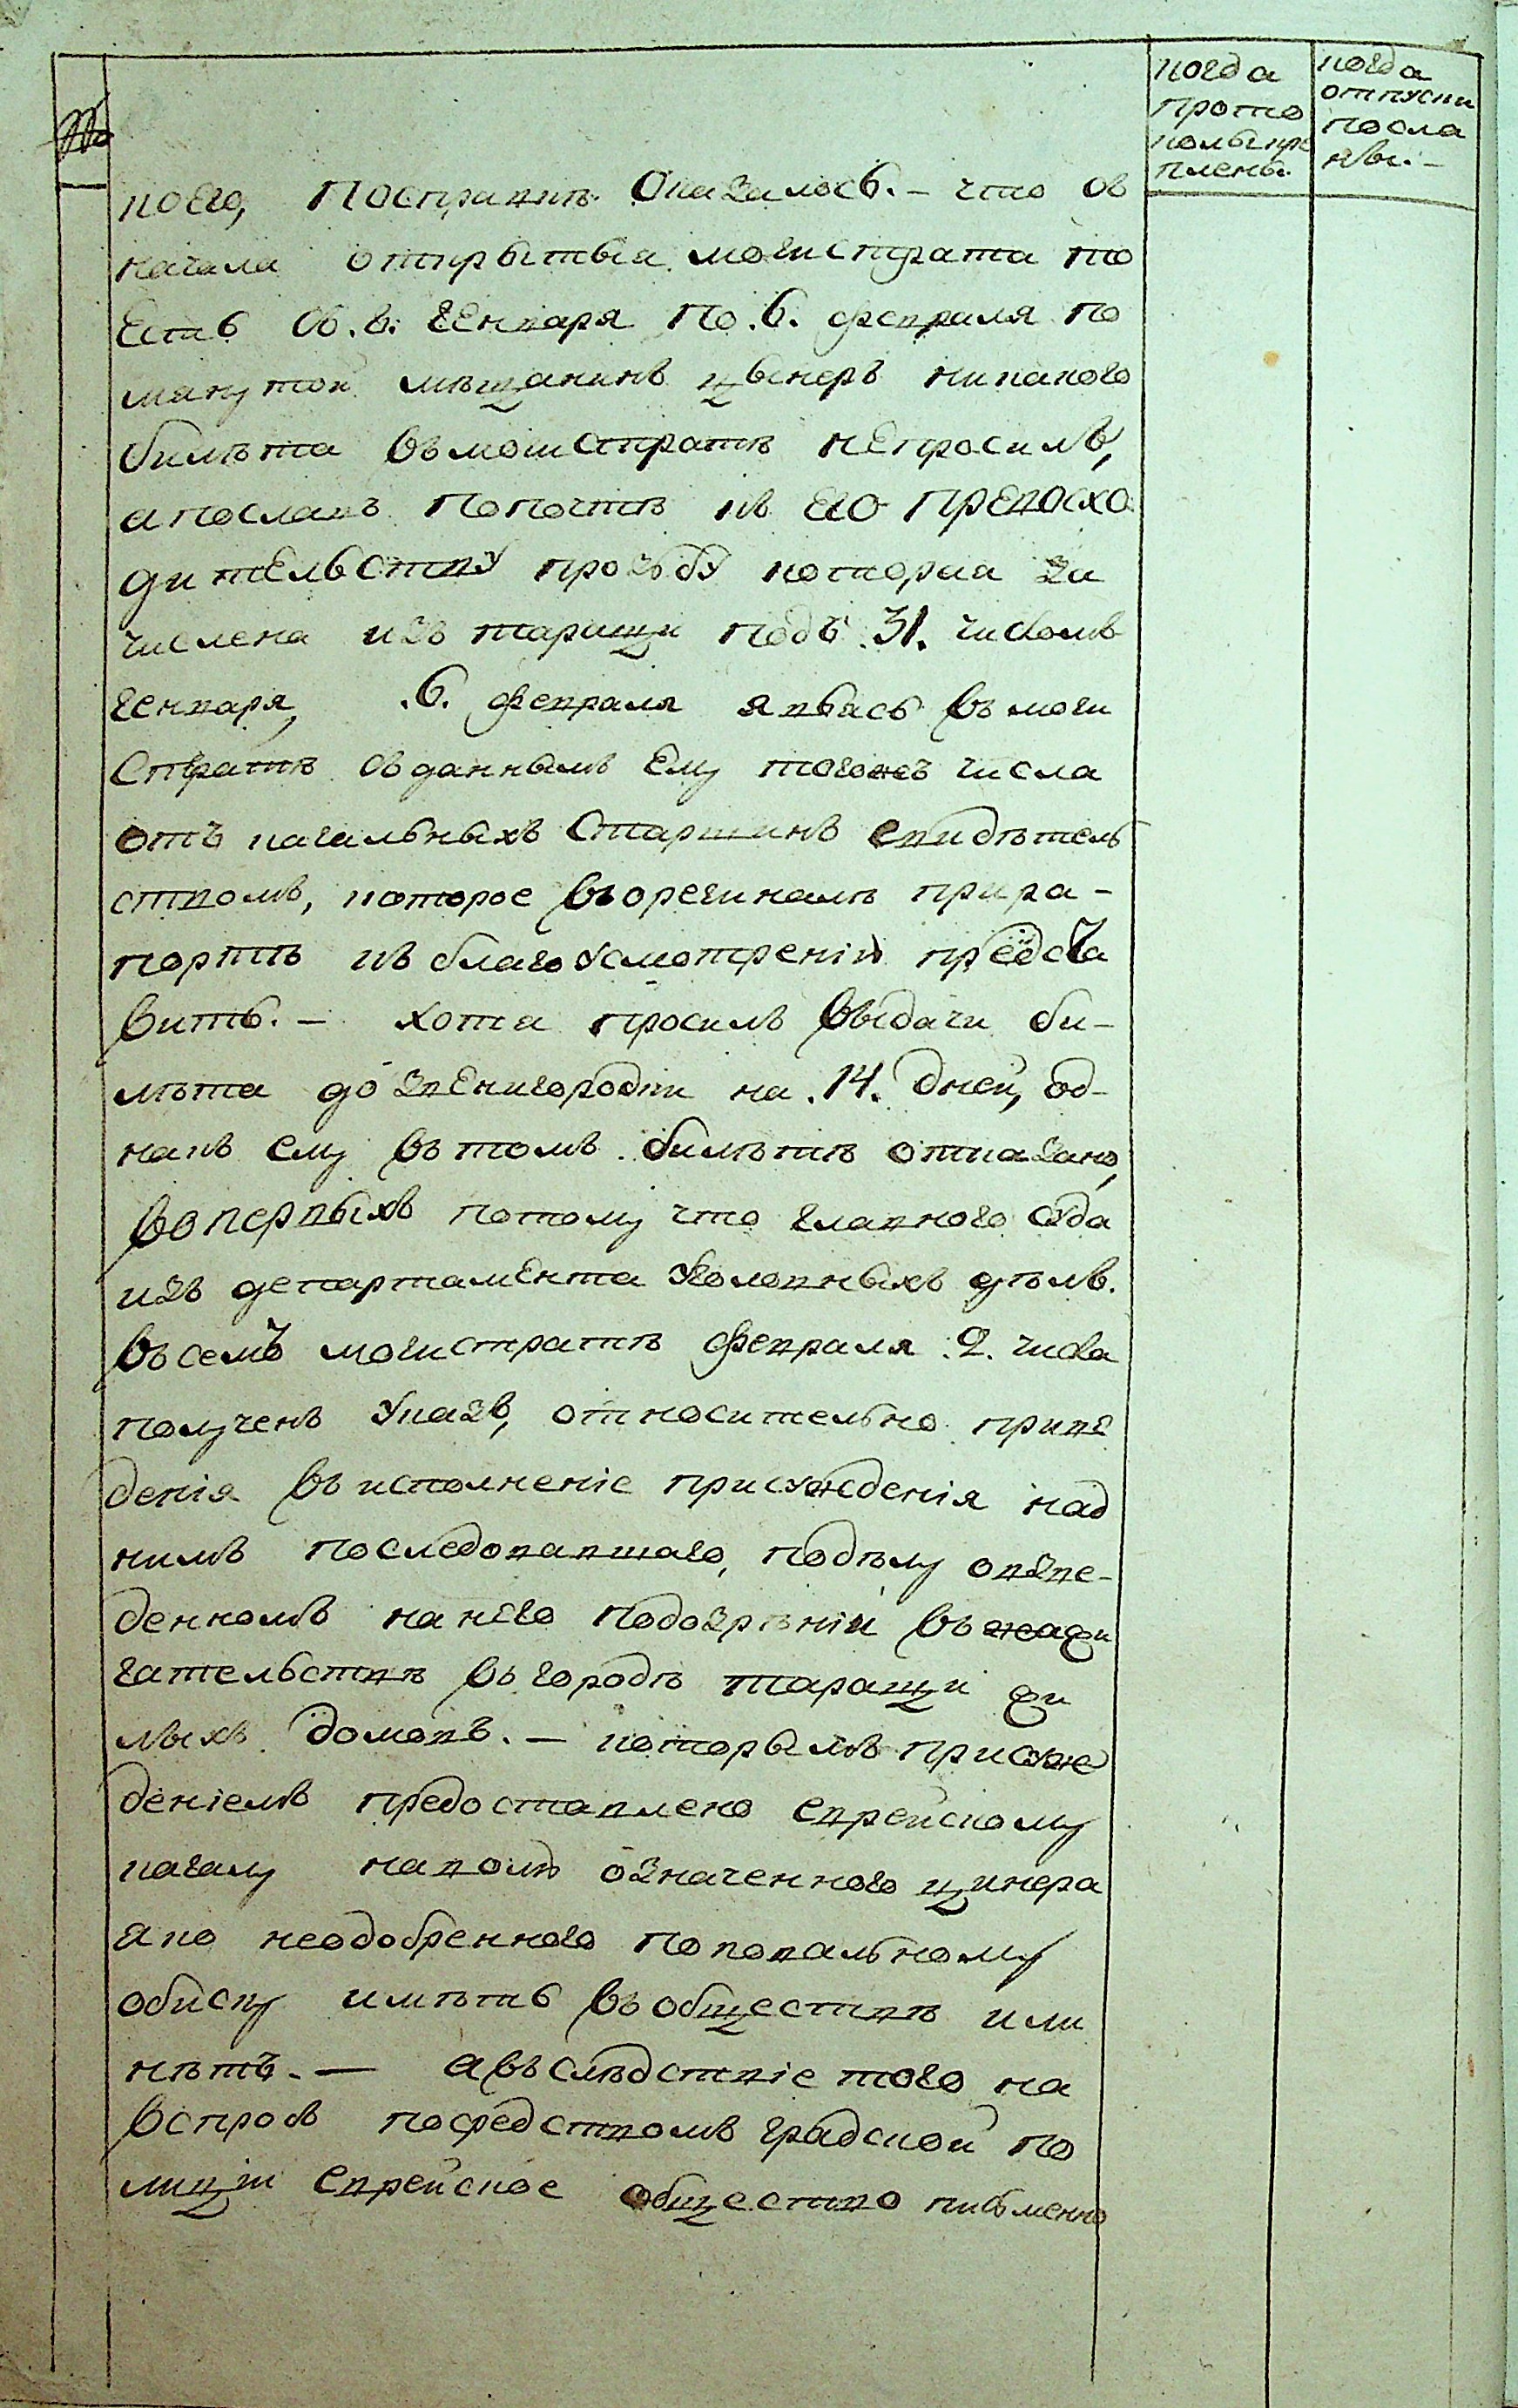 №
когда
прото
колы кре
плены.
когда
отпуски
посла
ны.–
коего, посправкѣ оказалось.– что съ
начала открытыя магистрата то
есть съ.8. генваря по.6. февраля по
мянутой мѣщанинъ цынеръ никакого
билѣта въ магистратѣ непросилъ,
а послалъ попочтѣ къ его превосхо
дительству прозьбу которая за
числена изъ таращи подъ .31. числомъ
генваря, .6. февраля явясь въ маги
стратѣ съ даннымъ ему тогожъ числа
отъ кагальныхъ старшинъ свидѣтель
ствомъ, которое въ оригиналѣ прира-
портѣ къ благоусмотренію предста
вить.– хотя просилъ выдачи би-
лѣта до звенигородки на .14. дней, од-
накъ ему въ томъ билѣтѣ отказано,
вопервыхъ потому что главного суда
изъ департамента уголовныхъ дѣлъ.
въ семъ магистратѣ февраля .2. числа
полученъ указъ, относительно приве
денія въ исполненіе присужденія над
нимъ последовавшаго, подѣлу о взве-
денномъ на него подозрѣніи въ зажи
гательствѣ въ городѣ таращи жи
лыхъ домовъ.– которымъ присуж
деніемъ предоставлено еврейскому
кагалу на волю означенного цинера
яко неодобренного поповальному
обиску имѣть въ обществѣ или
нѣтъ.– а въ слѣдствіе того на
вспросъ посредствомъ градской по
лиціи еврейское общество письменно